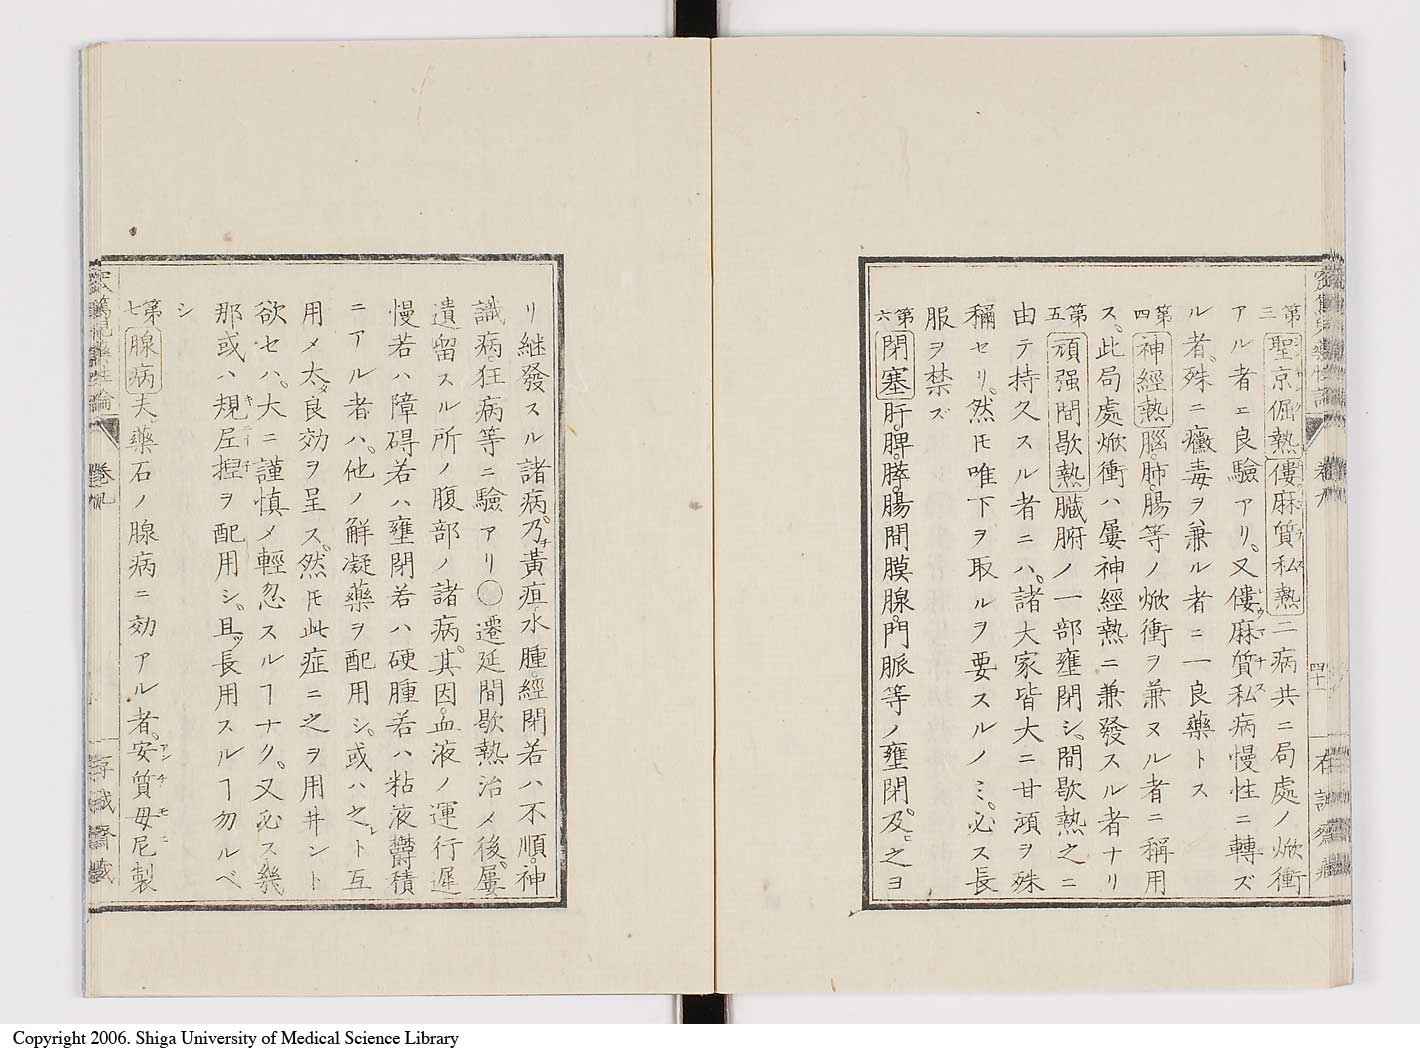 第三 聖京倔熱 僂麻質私熱 二病共ニ局處ノ焮衝
アル者ニ良驗アリ。又僂麻質私病慢性ニ轉ズ
ル者。殊ニ黴毒ヲ兼ル者ニ一良藥トス
第四 神經熱 腦。肺。腸等ノ焮衝ヲ兼ヌル者ニ稱用
ス。此局處焮衝ハ屢神經熱ニ兼發スル者ナリ
第五 頑强間歇熱 臓腑ノ一部壅閉シ。間歇熱之ニ
由テ持久スル者ニハ。諸大家皆大ニ甘汞ヲ殊
稱セリ。然𪜈唯下ヲ取ルヲ要スルノミ。必ス長
服ヲ禁ズ
第六 閉塞 肝。脾。膵。腸間膜腺。門脈等ノ壅閉。及ヒ之ヨ
リ継發スル諸病。乃チ黃疸。水腫。經閉若ハ不順。神
識病。狂病等ニ驗アリ〇遷延間歇熱治メ後。屢
遺留スル所ノ腹部ノ諸病。其因。血液ノ運行遲
慢若ハ障碍若ハ壅閉若ハ硬腫若ハ粘液欝積
ニアル者ハ。他ノ解凝藥ヲ配用シ。或ハ之レト互
用メ太タ良効ヲ呈ス。然𪜈此症ニ之ヲ用井ント
欲セハ。大ニ謹慎メ輕忽スルヿナク。又必ス幾
那或ハ規尼捏ヲ配用シ。且ツ長用スルヿ勿ルベ
シ
第七 腺病 夫。藥石ノ腺病ニ効アル者。安質母尼製
卷九
四十一
存誠齋藏
Copyright 2006. Shiga University of Medical Science Library